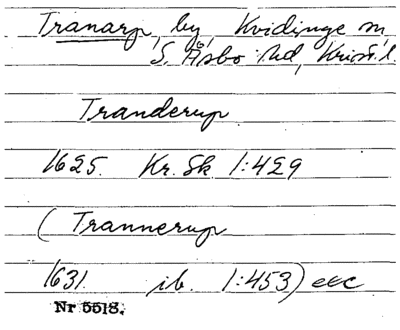 Tranarp, by, Kvidinge sn,
S. Åsbo hd, Krist. l.
Tranderup
1625. Kr. Sk 1:429
(Trannerup
1631. ib. 1:453) etc
Nr 5518.